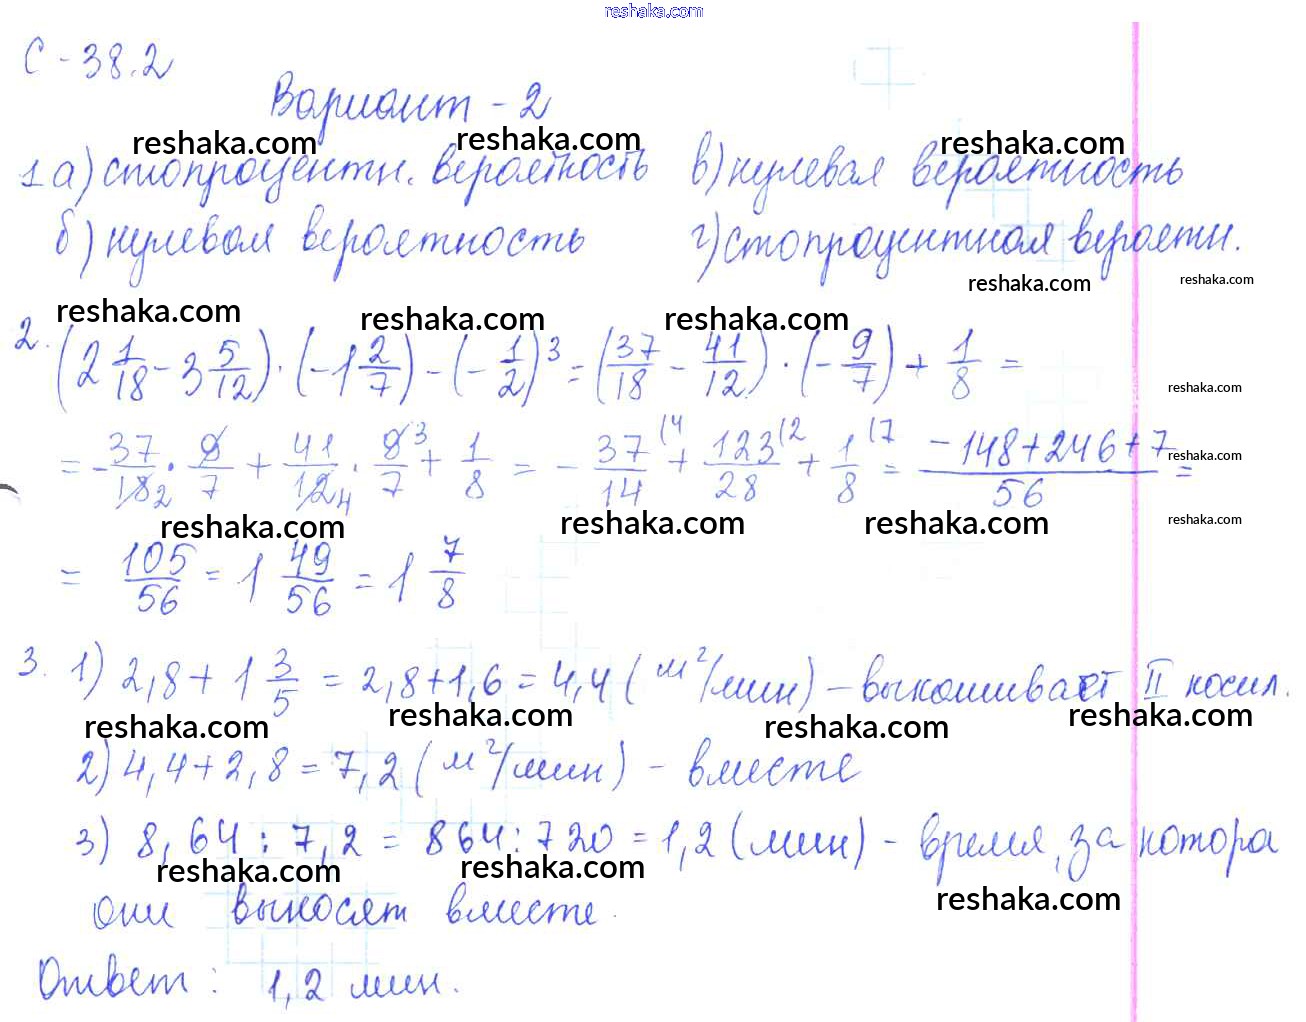 reshaka.com
С-38.2
Вариант - 2
reshaka.com reshaka.com reshaka.com
1 а) стопроцентн. вероятность в) нулевая вероятность
б) нулевая вероятность г) стопроцентная вероятн.
reshaka.com reshaka.com
reshaka.com reshaka.com reshaka.com
2. (2 1/18 - 3 5/12) · (-1 2/7) - (-1/2)^3 = (37/18 - 41/12) · (-9/7) + 1/8 =
reshaka.com
= -37/18 2 · 9/7 + 41/12 4 · 9 3/7 + 1/8 = -37/14 (4 + 123/28 (2 + 1/8 (7 = -148+246+7/56 =
reshaka.com
reshaka.com reshaka.com reshaka.com reshaka.com
= 105/56 = 1 49/56 = 1 7/8
3. 1) 2,8 + 1 3/5 = 2,8+1,6 = 4,4 (м²/мин) - выкашивает II косил.
reshaka.com reshaka.com reshaka.com reshaka.com
2) 4,4+2,8 = 7,2 (м²/мин) - вместе
3) 8,64 : 7,2 = 864:720 = 1,2 (мин) - время, за котора
reshaka.com reshaka.com reshaka.com
они выкосят вместе.
Ответ: 1,2 мин.